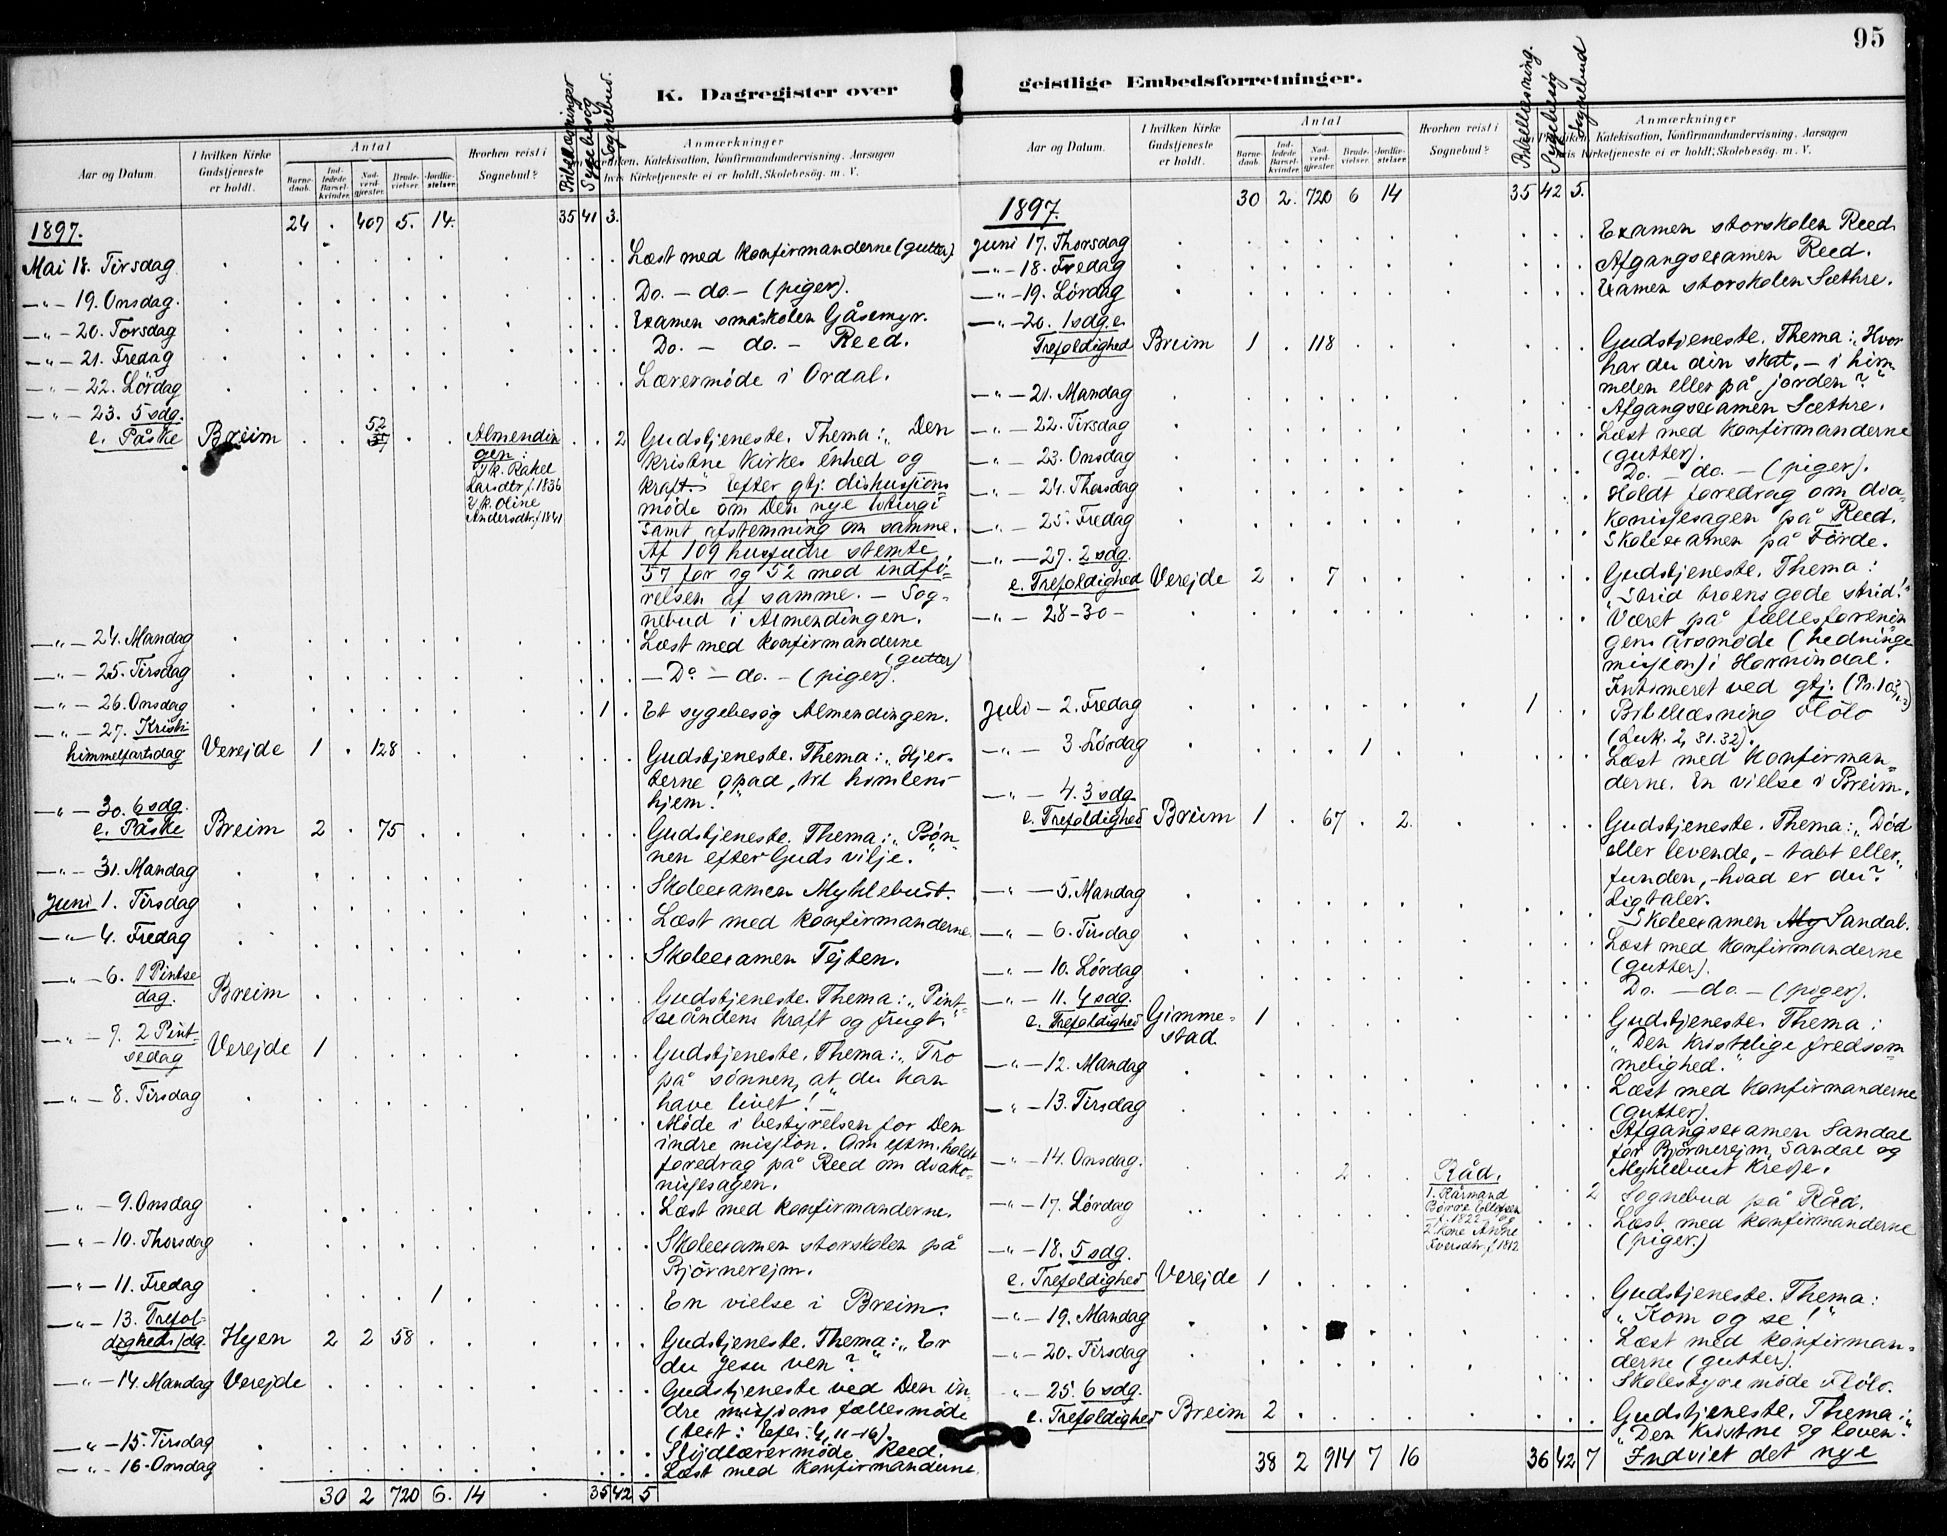 95
K. Dagregister over geistlige Embedsforretninger.
Aar og Datum.
I hvilken Kirke Gudstjeneste er holdt.
Antal
Barne-daab.
Ind-ledede Barsel-kvinder.
Nad-verd-gjester.
Brude-vielser.
Jordfæ-stelser.
Hvorhen reist i Sognebud?
Bibellæsninger
Sygebesøg
Sognebud.
Anmærkninger
Katekisation, Konfirmandundervisning. Aarsagen
hvis Kirketjeneste ei er holdt, Skolebesøg. m. V.
1897. 24 . 407 5. 14. 35 41 3.
Mai 18. Tirsdag Læst med konfirmanderne (gutter)
—"— 19. Onsdag. Do. — do. — (piger).
—"— 20. Torsdag Examen småskolen Gåsemyr.
—"— 21. Fredag Do. — do. — Reed.
—"— 22. Lördag Lærermøde i Ordal.
—"— 23. 5 sdg.
e. Påske Breim 52 Almendin
gen:
1 k. Rakel
Larsdtr. f. 1836
2 k. Oline
Andersdtr. f. 1841
2 Gudstjeneste. Thema: „Den
kristne kirkes enhed og
kraft." Efter gtj. diskusjons
møde om Den nye liturgi
samt afstemning om samme.
Af 109 husfædre stemte
57 for og 52 mod indfø-
relsen af samme. — Sog-
nebud i Almendingen.
—"— 24. Mandag Læst med konfirmanderne
(gutter)
—"— 25. Tirsdag — Do. — do. — (piger).
—"— 26. Onsdag 1 . Et sygebesøg Almendingen.
—"— 27. Kristi
himmelfartsdag Verejde 1 . 128 Gudstjeneste. Thema: „Hjer-
terne opad, til himlens
hjem!"
—"— 30. 6 sdg.
e. Påske Breim 2 . 75 Gudstjeneste. Thema: „Bøn-
nen efter Guds vilje."
—"— 31. Mandag Skoleexamen Myklebust.
Juni 1. Tirsdag Læst med konfirmanderne.
—"— 4. Fredag Skoleexamen Fejten.
—"— 6. 1 Pintse
dag. Breim Gudstjeneste. Thema: „Pint-
seåndens kraft og frugt."
—"— 7. 2 Pint-
sedag Verejde 1 Gudstjeneste. Thema: „Tro
på sønnen, at du kan
have livet!" —
—"— 8. Tirsdag Møde i bestyrelsen for Den
indre misjon. Om eftm. holdt
foredrag på Reed om diako-
nisjesagen.
—"— 9. Onsdag Læst med konfirmanderne.
—"— 10. Thorsdag Skoleexamen storskolen på
Bjørnerejm.
—"— 11. Fredag 1 En vielse i Breim.
—"— 13. Trefol-
digheds/dg. Hyen 2 2 58 Gudstjeneste. Thema: „Er
du Jesu ven?"
—"— 14. Mandag Verejde Gudstjeneste ved Den in-
dre misjons fællesmøde
(text: Efes. 4, 11-16).
—"— 15. Tirsdag Slöjdlærermøde Reed.
—"— 16. Onsdag Læst med konfirmanderne.
30 2 720 6. 14 35 42 5
Aar og Datum.
I hvilken Kirke Gudstjeneste er holdt.
Antal
Barne-daab.
Ind-ledede Barsel-kvinder.
Nad-verd-gjester.
Brude-vielser.
Jordfæ-stelser.
Hvorhen reist i Sognebud?
Bibellæsning.
Sygebesøg
Sognebud
Anmærkninger
Katekisation, Konfirmandundervisning. Aarsagen
hvis Kirketjeneste ei er holdt, Skolebesøg. m. V.
1897. 30 2. 720 6 14 35 42 5.
Juni 17. Thorsdag Examen storskolen Reed.
—"— 18. Fredag Afgangsexamen Reed.
—"— 19. Lørdag Examen storskolen Sæthre.
—"— 20. 1 sdg. e.
Trefoldighed Breim 1 . 118 Gudstjeneste. Thema: „Hvor
har du din skat, — i him-
melen eller på jorden?"
—"— 21. Mandag Afgangsexamen Sæthre.
—"— 22. Tirsdag Læst med konfirmanderne
(gutter).
—"— 23. Onsdag Do. — do. — (piger).
—"— 24. Thorsdag Holdt foredrag om dia-
konisjesagen på Reed.
—"— 25. Fredag Skoleexamen på Førde.
—"— 27. 2 sdg.
e. Trefoldighed Verejde 2 . 7 Gudstjeneste. Thema:
„Strid troens gode strid!"
—"— 28-30 — Været på fællesforenin
gens årsmøde (hedninge
misjon) i Hornindal.
Intimeret ved gtj.
Juli — 2. Fredag 1 Bibellæsning Flölo
(Luk. 2, 31.32).
—"— 3. Lördag 1 Læst med konfirman-
derne. En vielse i Breim.
—"— 4. 3 sdg.
e. Trefoldighed Breim 1 . 67 . 2. Gudstjeneste. Thema: „Død
eller levende, — tabt eller
funden, — hvad er du?"
Ligtaler.
—"— 5. Mandag Skoleexamen My Sandal.
—"— 6. Tirsdag Læst med konfirmanderne
(gutter).
—"— 10. Lørdag Do. — do. — (piger).
—"— 11. 4 sdg.
e. Trefoldighed Gimme-
stad. 1 Gudstjeneste. Thema:
„Den kristelige fredsom
melighed."
—"— 12. Mandag Læst med konfirmanderne
(gutter).
—"— 13. Tirsdag Afgangsexamen Sandal
for Bjørnerejm, Sandal og
Myklebust kredse.
—"— 14. Onsdag. 2 Råd.
1. Kårmand
Børre Ellefsen
f. 1822. og
2 Kone Anne
Iversdtr. f. 1842
2 Sognebud på Råd.
—"— 17. Lørdag Læst med konfirmanderne
(piger.)
—"— 18. 5 sdg.
e. Trefoldighed Verejde 1 Gudstjeneste. Thema:
„Kom og se!"
—"— 19. Mandag Læst med konfirman-
derne (gutter).
—"— 20. Tirsdag Skolestyremøde Flölo.
—"— 25. 6 sdg.
e. Trefoldighed Breim 2 Gudstjeneste. Thema:
„Den kristne og loven."
38 2 914 7 16 36 42 7 Indviet det nye